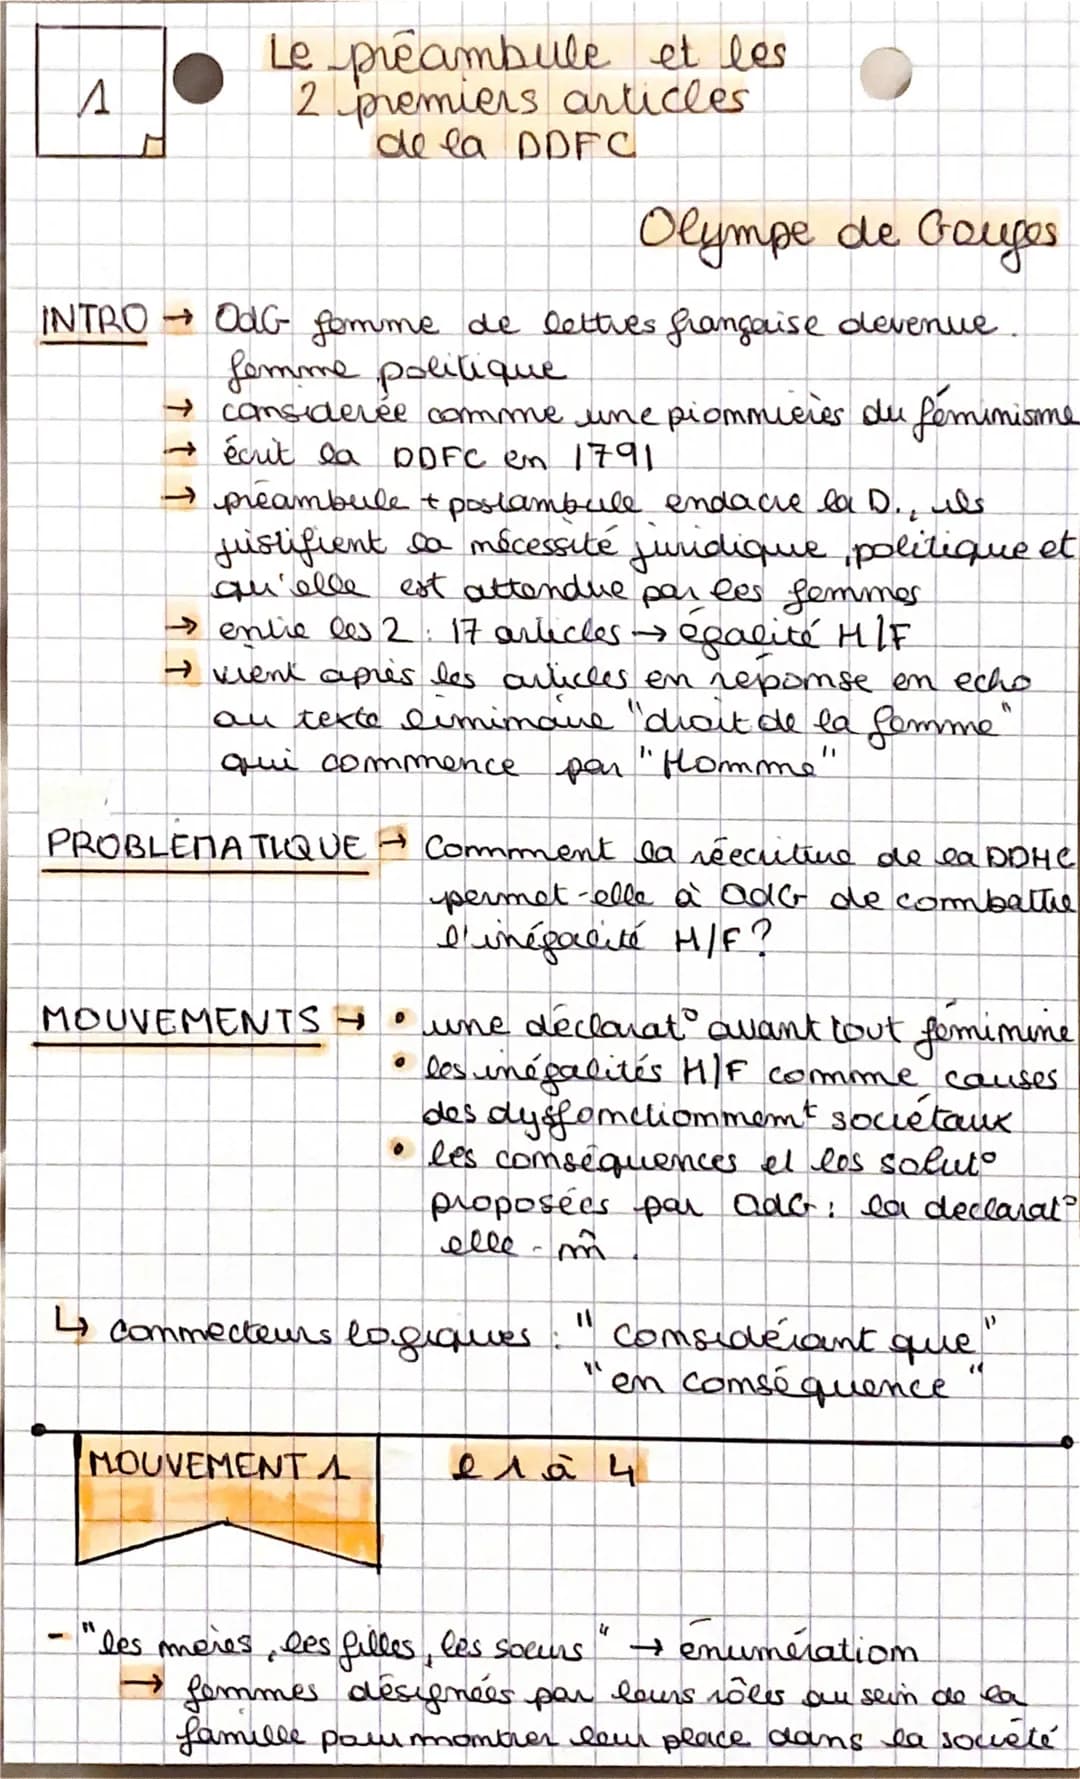 1
Le préambule et les
2 premiers articles
de la DDFC
Olympe de Gouges
INTRO → OdG femme de lettres française devenue
femme politique
→ considerée comme une pionnières du féminisme
→ écrit la DDFC en 1791
→ préambule + postambule endacre la D., ils
justifient sa nécessité juridique, politique et
qu'elle est attendue par les femmes
→ entre les 2 : 17 articles → égalité H/F
→ vient après les articles en réponse en echo
au texte liminaire "droit de la femme"
qui commence par "Homme"
PROBLÉMATIQUE → Comment la réecriture de la DDHC
permet-elle à OdG de combattre
l'inégalité H/F ?
MOUVEMENTS → • une déclarat° avant tout féminine
• les inégalités H/F comme causes
des dysfonctionnemt sociétaux
• les conséquences et les solut°
proposées par OdG : la declarat°
elle - m̂.
↳ connecteurs logiques : "considérant que"
"en conséquence"
MOUVEMENT 1 l 1 à 4
- "les mères, les filles, les soeurs" → énumération
→ femmes désignées par leurs rôles au sein de la
famille pour montrer leur place dans la société